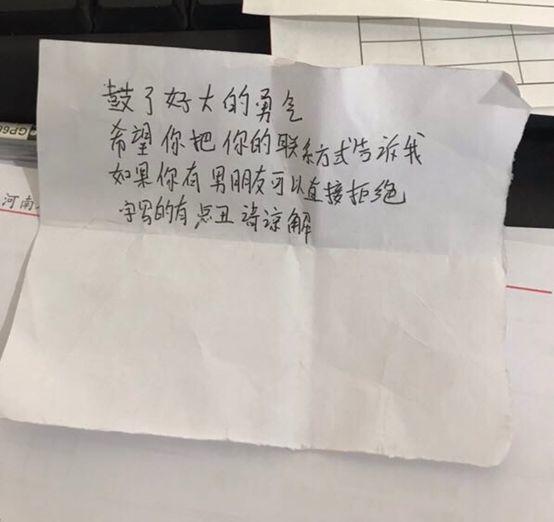 鼓了好大的勇气
希望你把你的联系方式告诉我
如果你有男朋友可以直接拒绝
字写的有点丑请谅解
GP6
河南